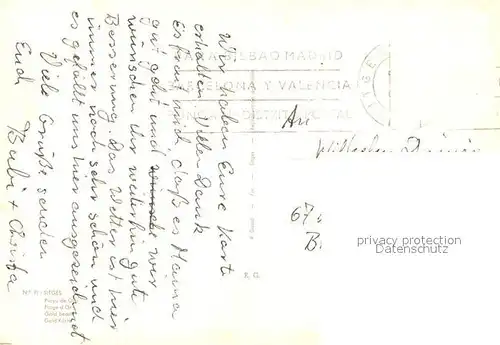 Wir haben Eure Karte
erhalten. Vielen Dank
es freut mich daß es Mama
gut geht und wir
wünschen ihr weiterhin gute
Besserung. Das Wetter ist hier
immer noch sehr schön und
es gefällt uns hier ausgezeichnet
Viele Grüße senden
Euch Babi +
BILBAO MADRID
BARCELONA Y VALENCIA
DISTRITO POSTAL
An
67
B
privacy protection
Datenschutz
S. G.
SITGES